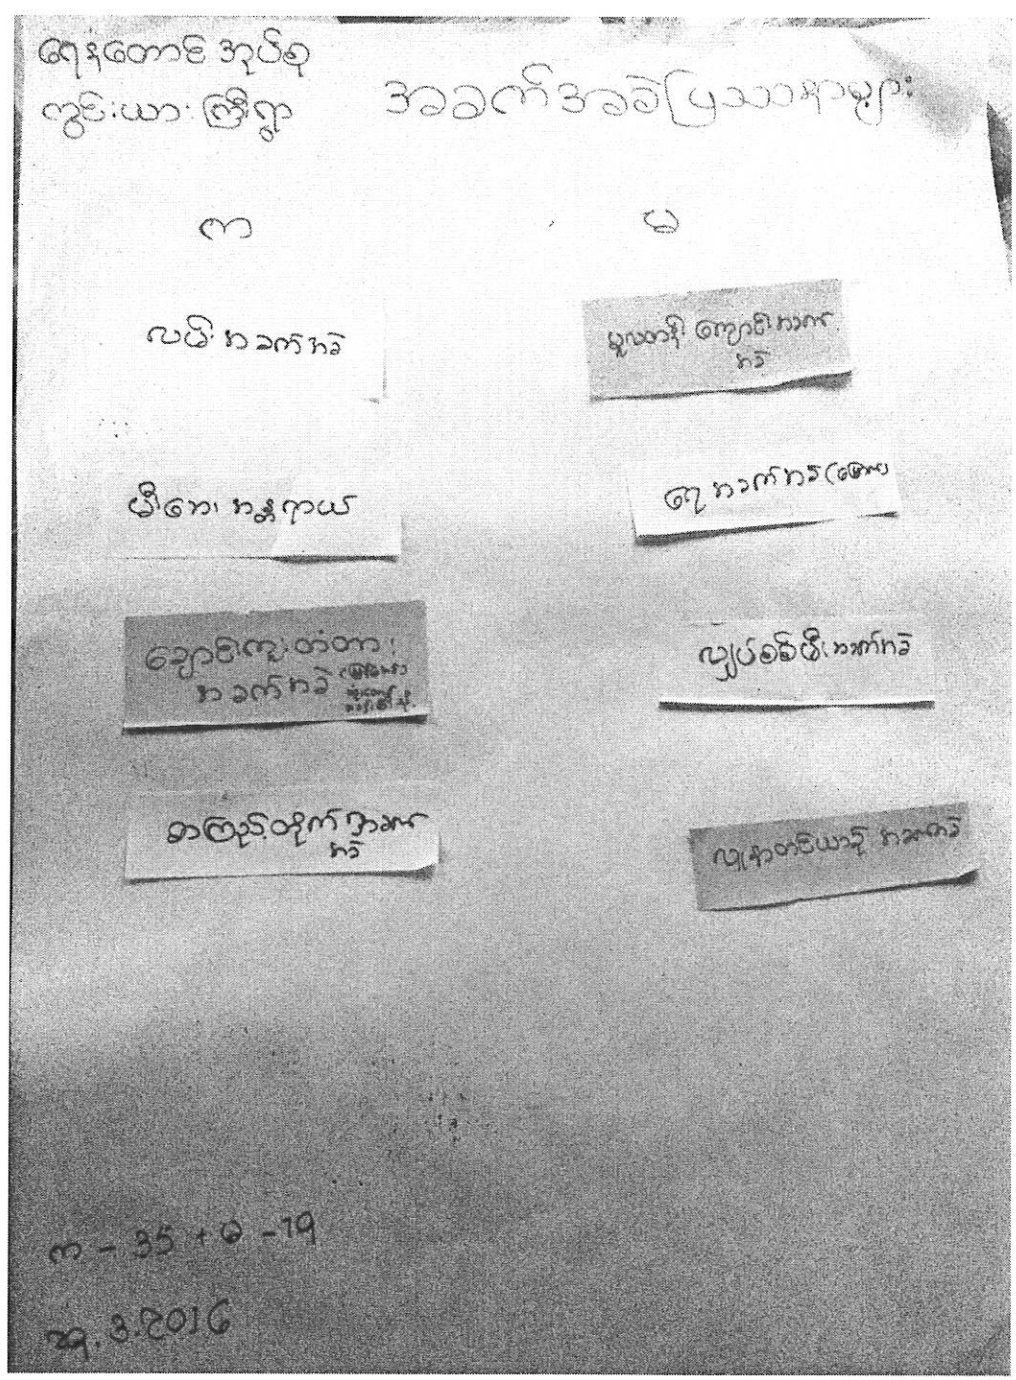 ရေနံတောင် အုပ်စု
ကွင်းယား ကြီးရွာ
အခက်အခဲပြဿနာများ
ကျ
မ
လမ်း အခက်အခဲ
မီးဘေး အန္တရာယ်
ချောင်းကူး တံတား
အခက်အခဲ
စာကြည့်တိုက် အခက်
အခဲ
မူလတန်း ကျောင်း အခက်
အခဲ
ရေ အခက်အခဲ
လျှပ်စစ်မီး အခက်အခဲ
အခက်အခဲ
ကျ - 35 + မ - 19
29.3.2016